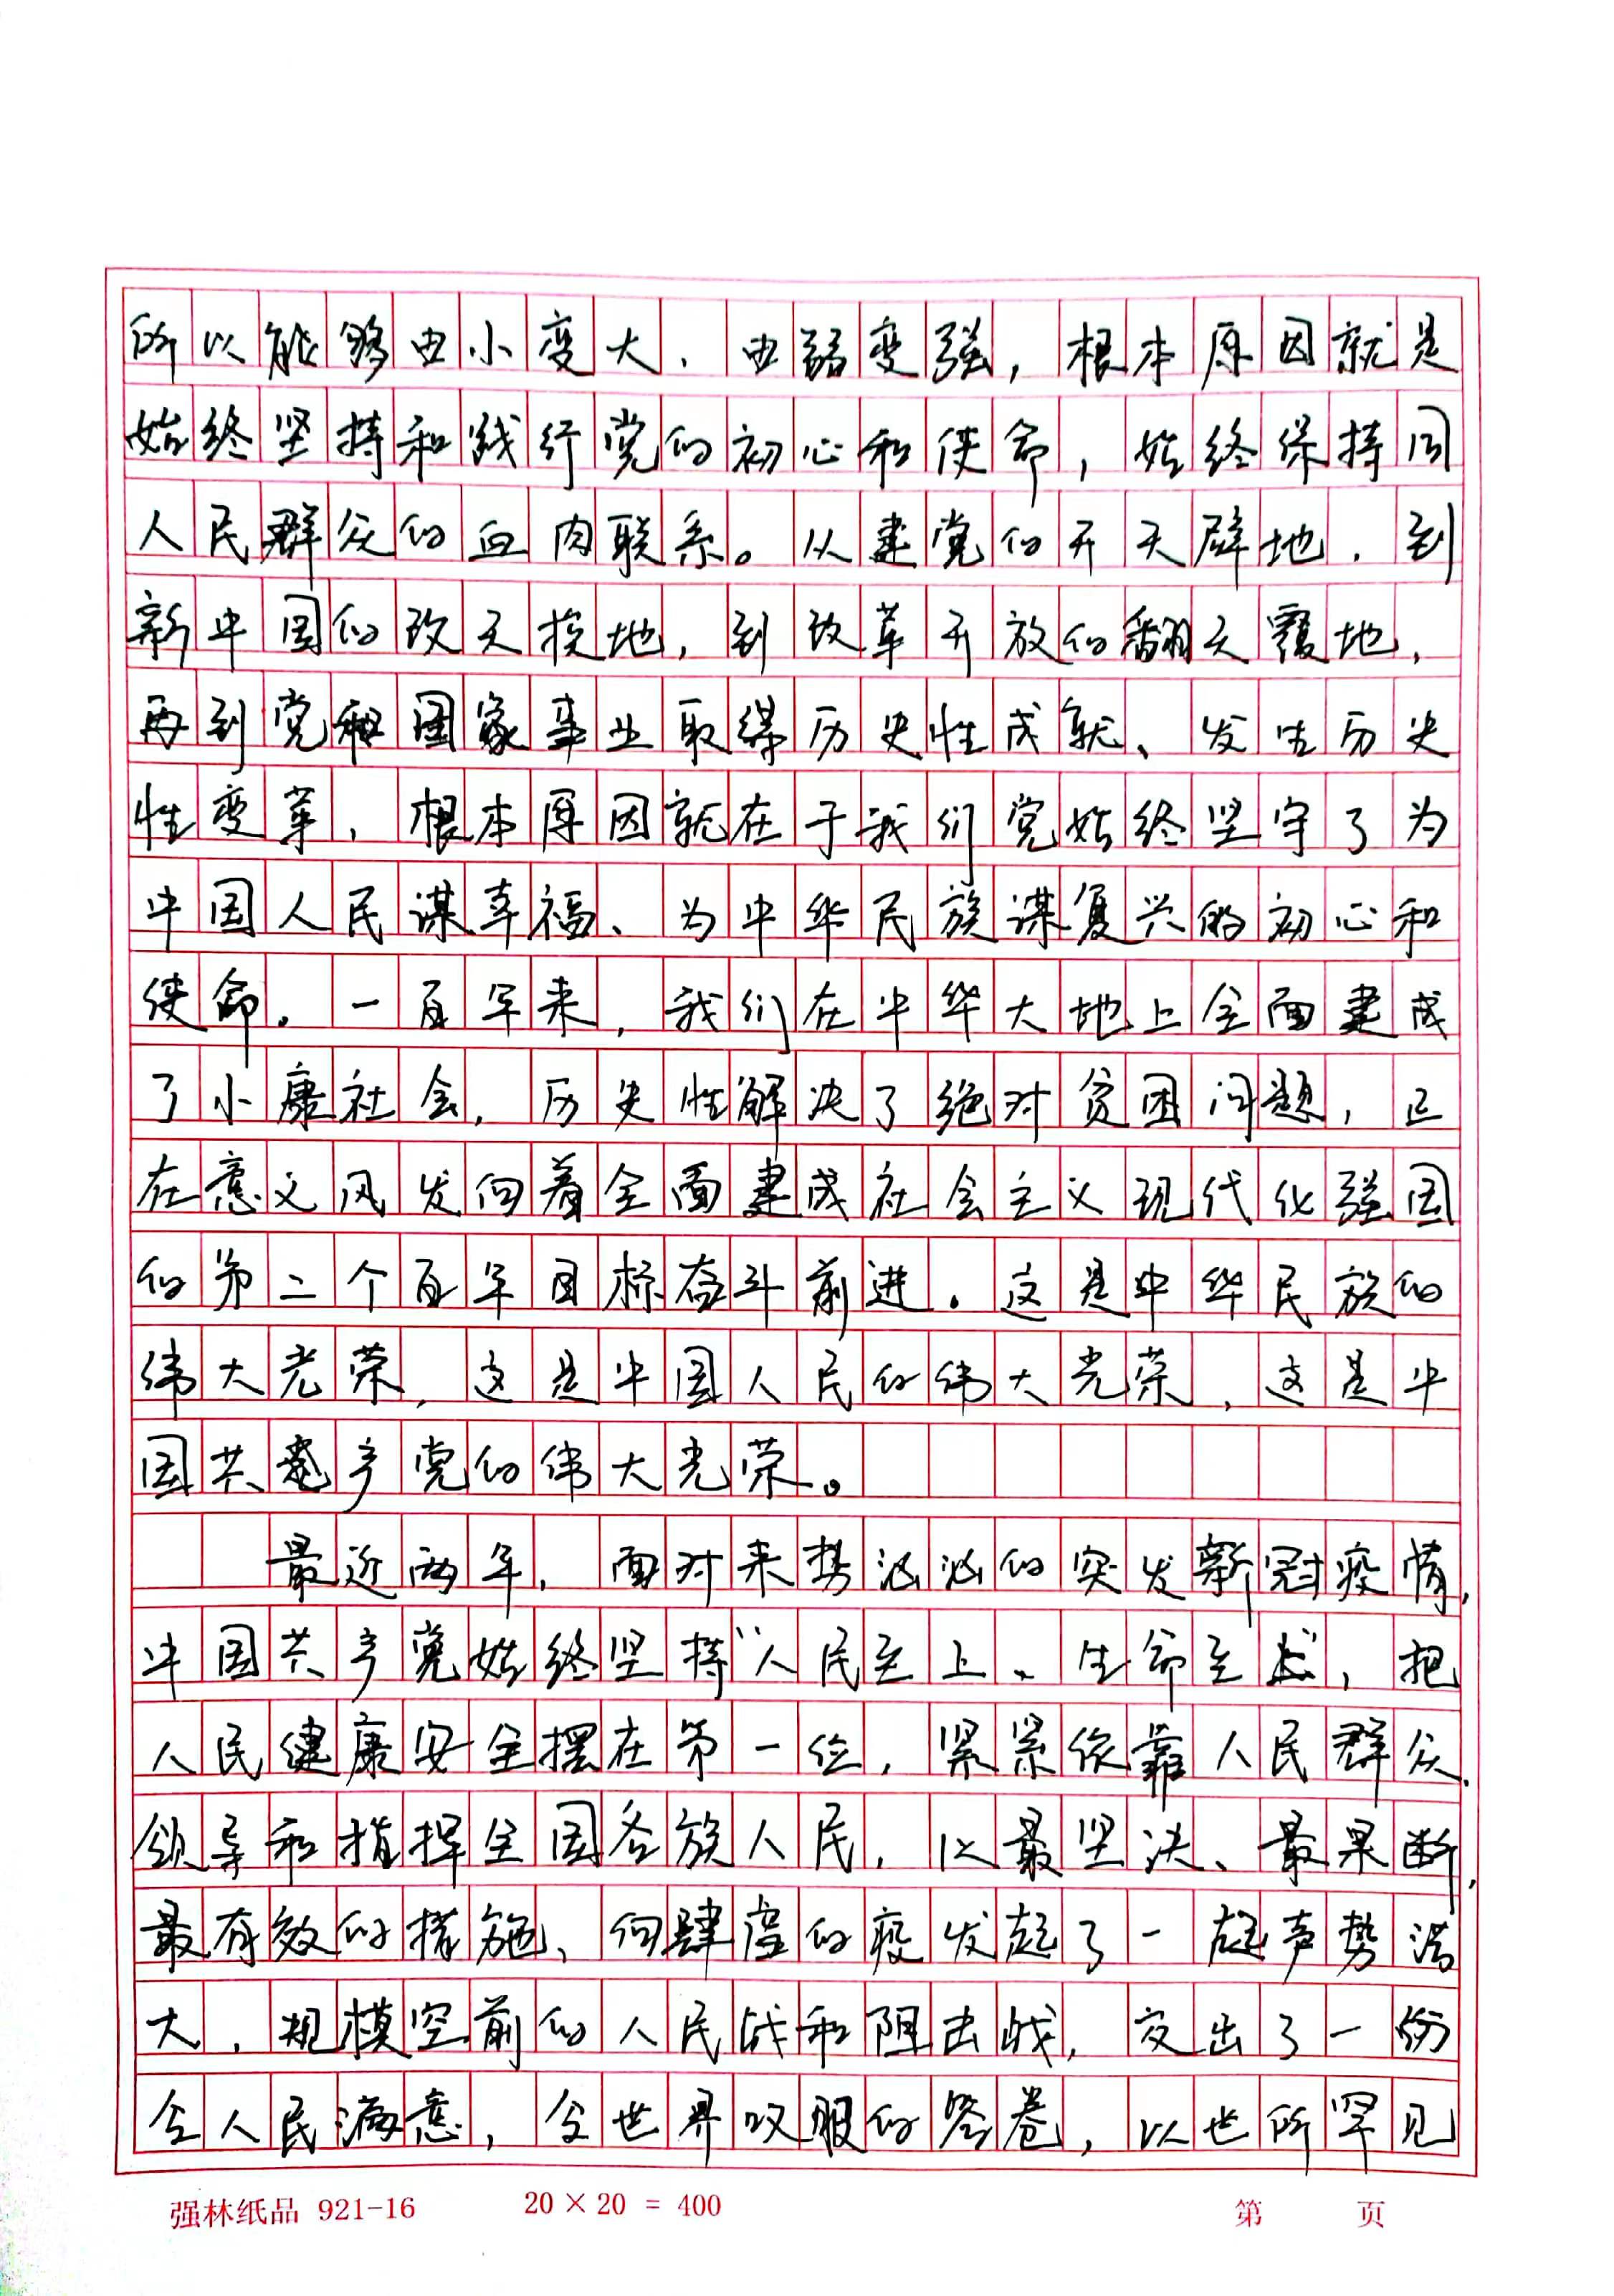 所以能够由小变大、由弱变强，根本原因就是
始终坚持和践行党的初心和使命，始终保持同
人民群众的血肉联系。从建党的开天辟地，到
新中国的改天换地，到改革开放的翻天覆地，
再到党和国家事业取得历史性成就、发生历史
性变革，根本原因就在于我们党始终坚守了为
中国人民谋幸福、为中华民族谋复兴的初心和
使命。一百年来，我们在中华大地上全面建成
了小康社会，历史性解决了绝对贫困问题，正
在意义风发向着全面建成社会主义现代化强国
的第二个百年目标奋斗前进。这是中华民族的
伟大光荣，这是中国人民的伟大光荣，这是中
国共产党的伟大光荣。
最近两年，面对来势汹汹的突发新冠疫情，
中国共产党始终坚持“人民至上、生命至上”，把
人民健康安全摆在第一位，紧紧依靠人民群众，
领导和指挥全国各族人民，以最坚决、最果断，
最有效的措施、向肆虐的疫发起了一起声势浩
大，规模空前的人民战和阻击战，交出了一份
令人民满意，令世界叹服的答卷，以世所罕见
强林纸品 921-16 20×20 = 400 第 页